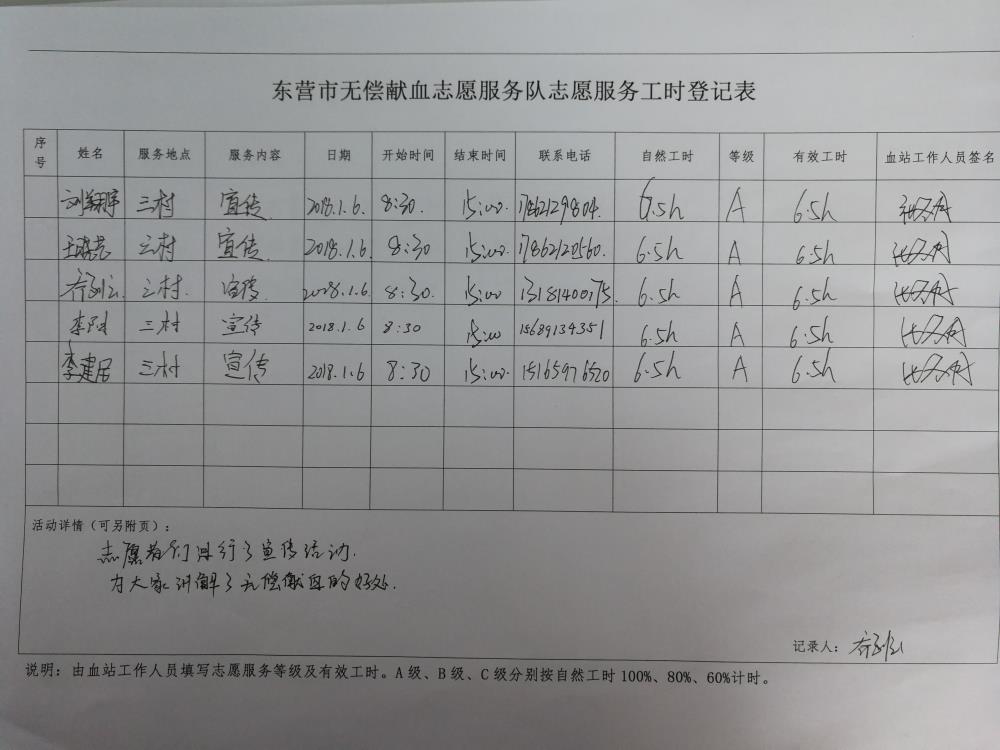 东营市无偿献血志愿服务队志愿服务工时登记表
序号 姓名 服务地点 服务内容 日期 开始时间 结束时间 联系电话 自然工时 等级 有效工时 血站工作人员签名
刘翔宇 三村 宣传 2018.1.6. 8:30. 15:00. 17862129804. 6.5h A 6.5h
三村 宣传 2018.1.6 8:30 15:00. 17862120560. 6.5h A 6.5h
三村. 宣传 2018.1.6. 8:30. 15:00 13181400175. 6.5h A 6.5h
三村 宣传 2018.1.6 8:30 15:00 15689134351 6.5h A 6.5h
李建居 三村 宣传 2018.1.6 8:30 15:00. 15165976520 6.5h A 6.5h
活动详情（可另附页）：
志愿者们进行了宣传活动.
为大家讲解了无偿献血的好处.
记录人：
说明：由血站工作人员填写志愿服务等级及有效工时。A级、B级、C级分别按自然工时100%、80%、60%计时。